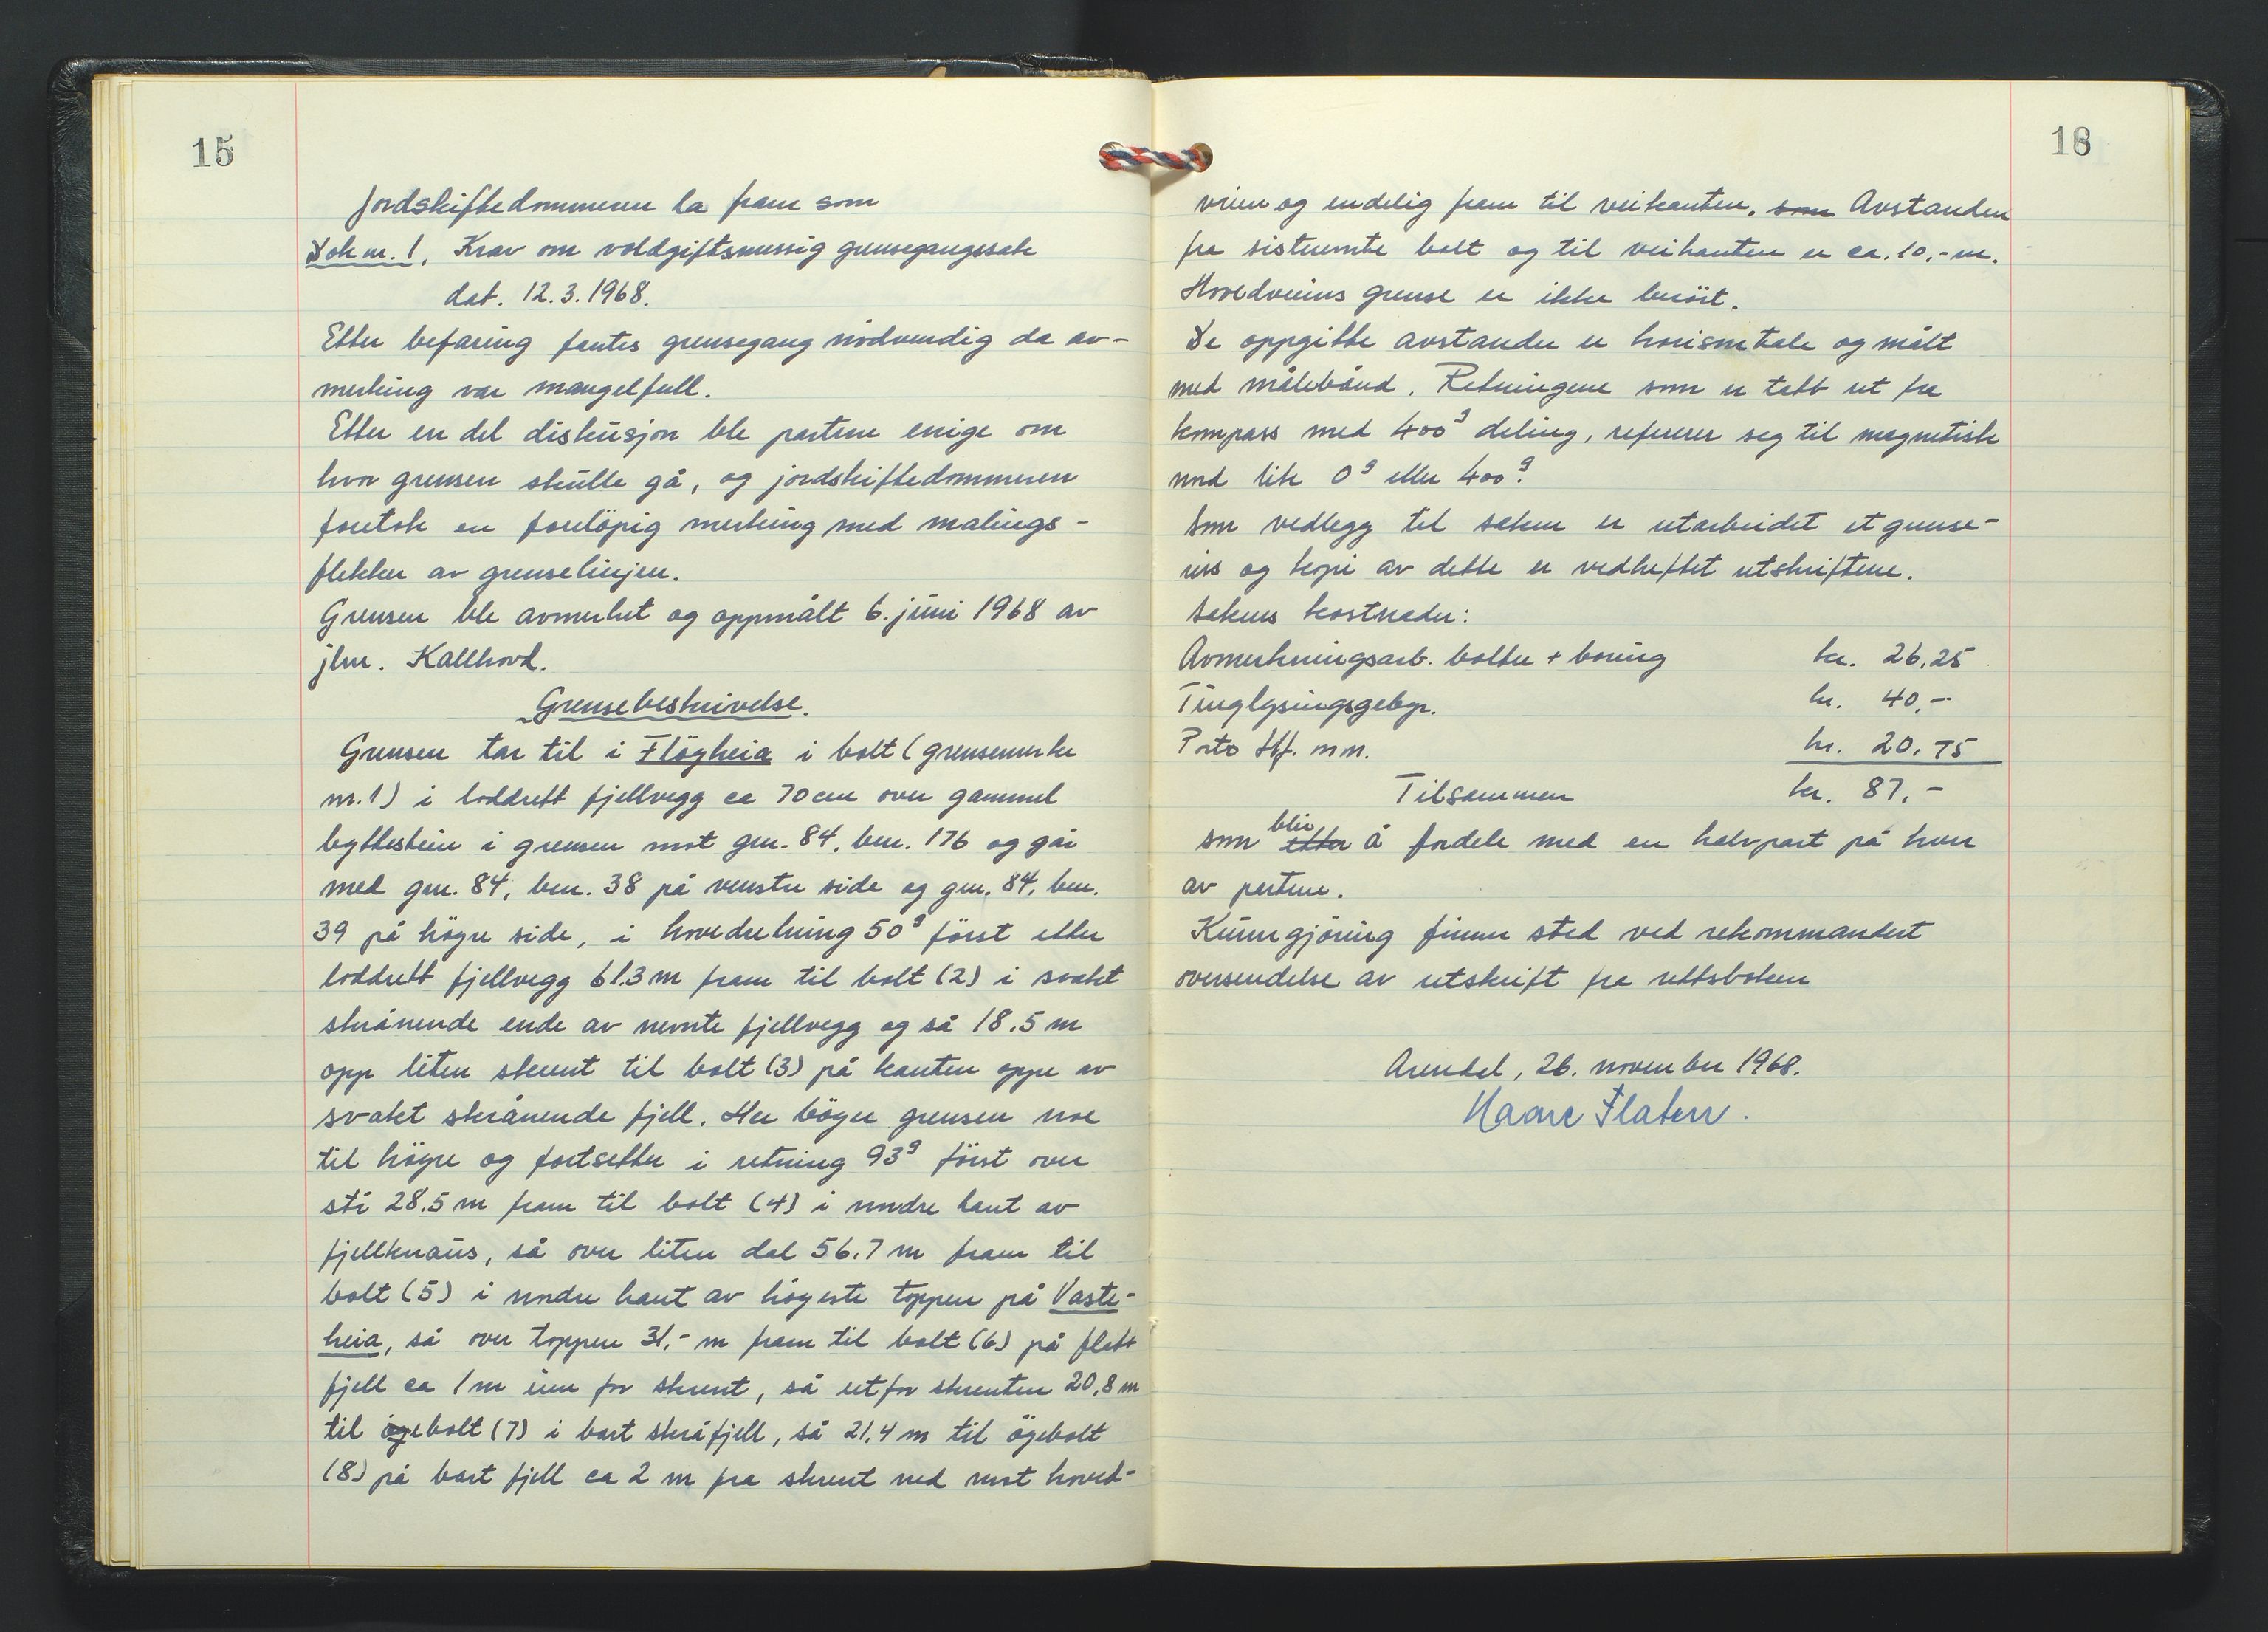 15
Jordskiftedommeren la fram som
Dok nr. 1. Krav om voldgiftsmessig grensegangssak
dat. 12.3.1968.
Etter befaring fantes grensegang nödvendig da av-
merking var mangelfull.
Etter en del diskusjon ble partene enige om
hvor grensen skulle gå, og jordskiftedommeren
foretok en forelöpig merking med malings-
flekker av grenselinjen.
Grensen ble avmerket og oppmålt 6. juni 1968 av
jkn. Kallhovd.
Grensebeskrivelse.
Grensen tar til i Flögheia i bolt (grensemerke
nr. 1) i loddrett fjellvegg ca 70 cm over gammel
byttestein i grensen mot gnr. 84, bnr. 176 og går
med gnr. 84, bnr. 38 på venstre side og gnr. 84, bnr.
39 på högre side, i hovedretning 50g först etter
loddrett fjellvegg 61.3 m fram til bolt (2) i svakt
skrånende ende av nevnte fjellvegg og så 18.5 m
opp liten skrent til bolt (3) på kanten oppe av
svakt skrånende fjell. Her böyer grensen noe
til högre og fortsetter i retning 93g först over
sti 28.5 m fram til bolt (4) i nordre kant av
fjellknaus, så over liten dal 56.7 m fram til
bolt (5) i nordre kant av högeste toppen på Vaste-
heia, så over toppen 31,- m fram til bolt (6) på flatt
fjell ca 1 m inn for skrent, så utfor skrenten 20,8 m
til ögebolt (7) i bart skråfjell, så 21.4 m til ögebolt
(8) på bart fjell ca 2 m fra skrent ned mot hoved-
16
veien og endelig fram til veikanten. som Avstanden
fra sistnevnte bolt og til veikanten er ca. 10,- m.
Hovedveiens grense er ikke berört.
De oppgitte avstander er horisontale og målt
med målebånd. Retningene som er tatt ut fra
kompass med 400g deling, refererer seg til magnetisk
nord lik 0g eller 400g.
Som vedlegg til saken er utarbeidet et grense-
riss og kopi av dette er vedheftet utskriftene.
Sakens kostnader:
Avmerkningsarb. bolter + boring kr. 26,25
Tinglysingsgebyr. kr. 40,-
Porto tlf. m.m. kr. 20,75
Tilsammen kr. 87,-
blir
som å fordele med en halvpart på hver
av partene.
Kunngjöring finner sted ved rekommandert
oversendelse av utskrift fra rettsboken
Arendal, 26. november 1968.
Kaare Flaten.